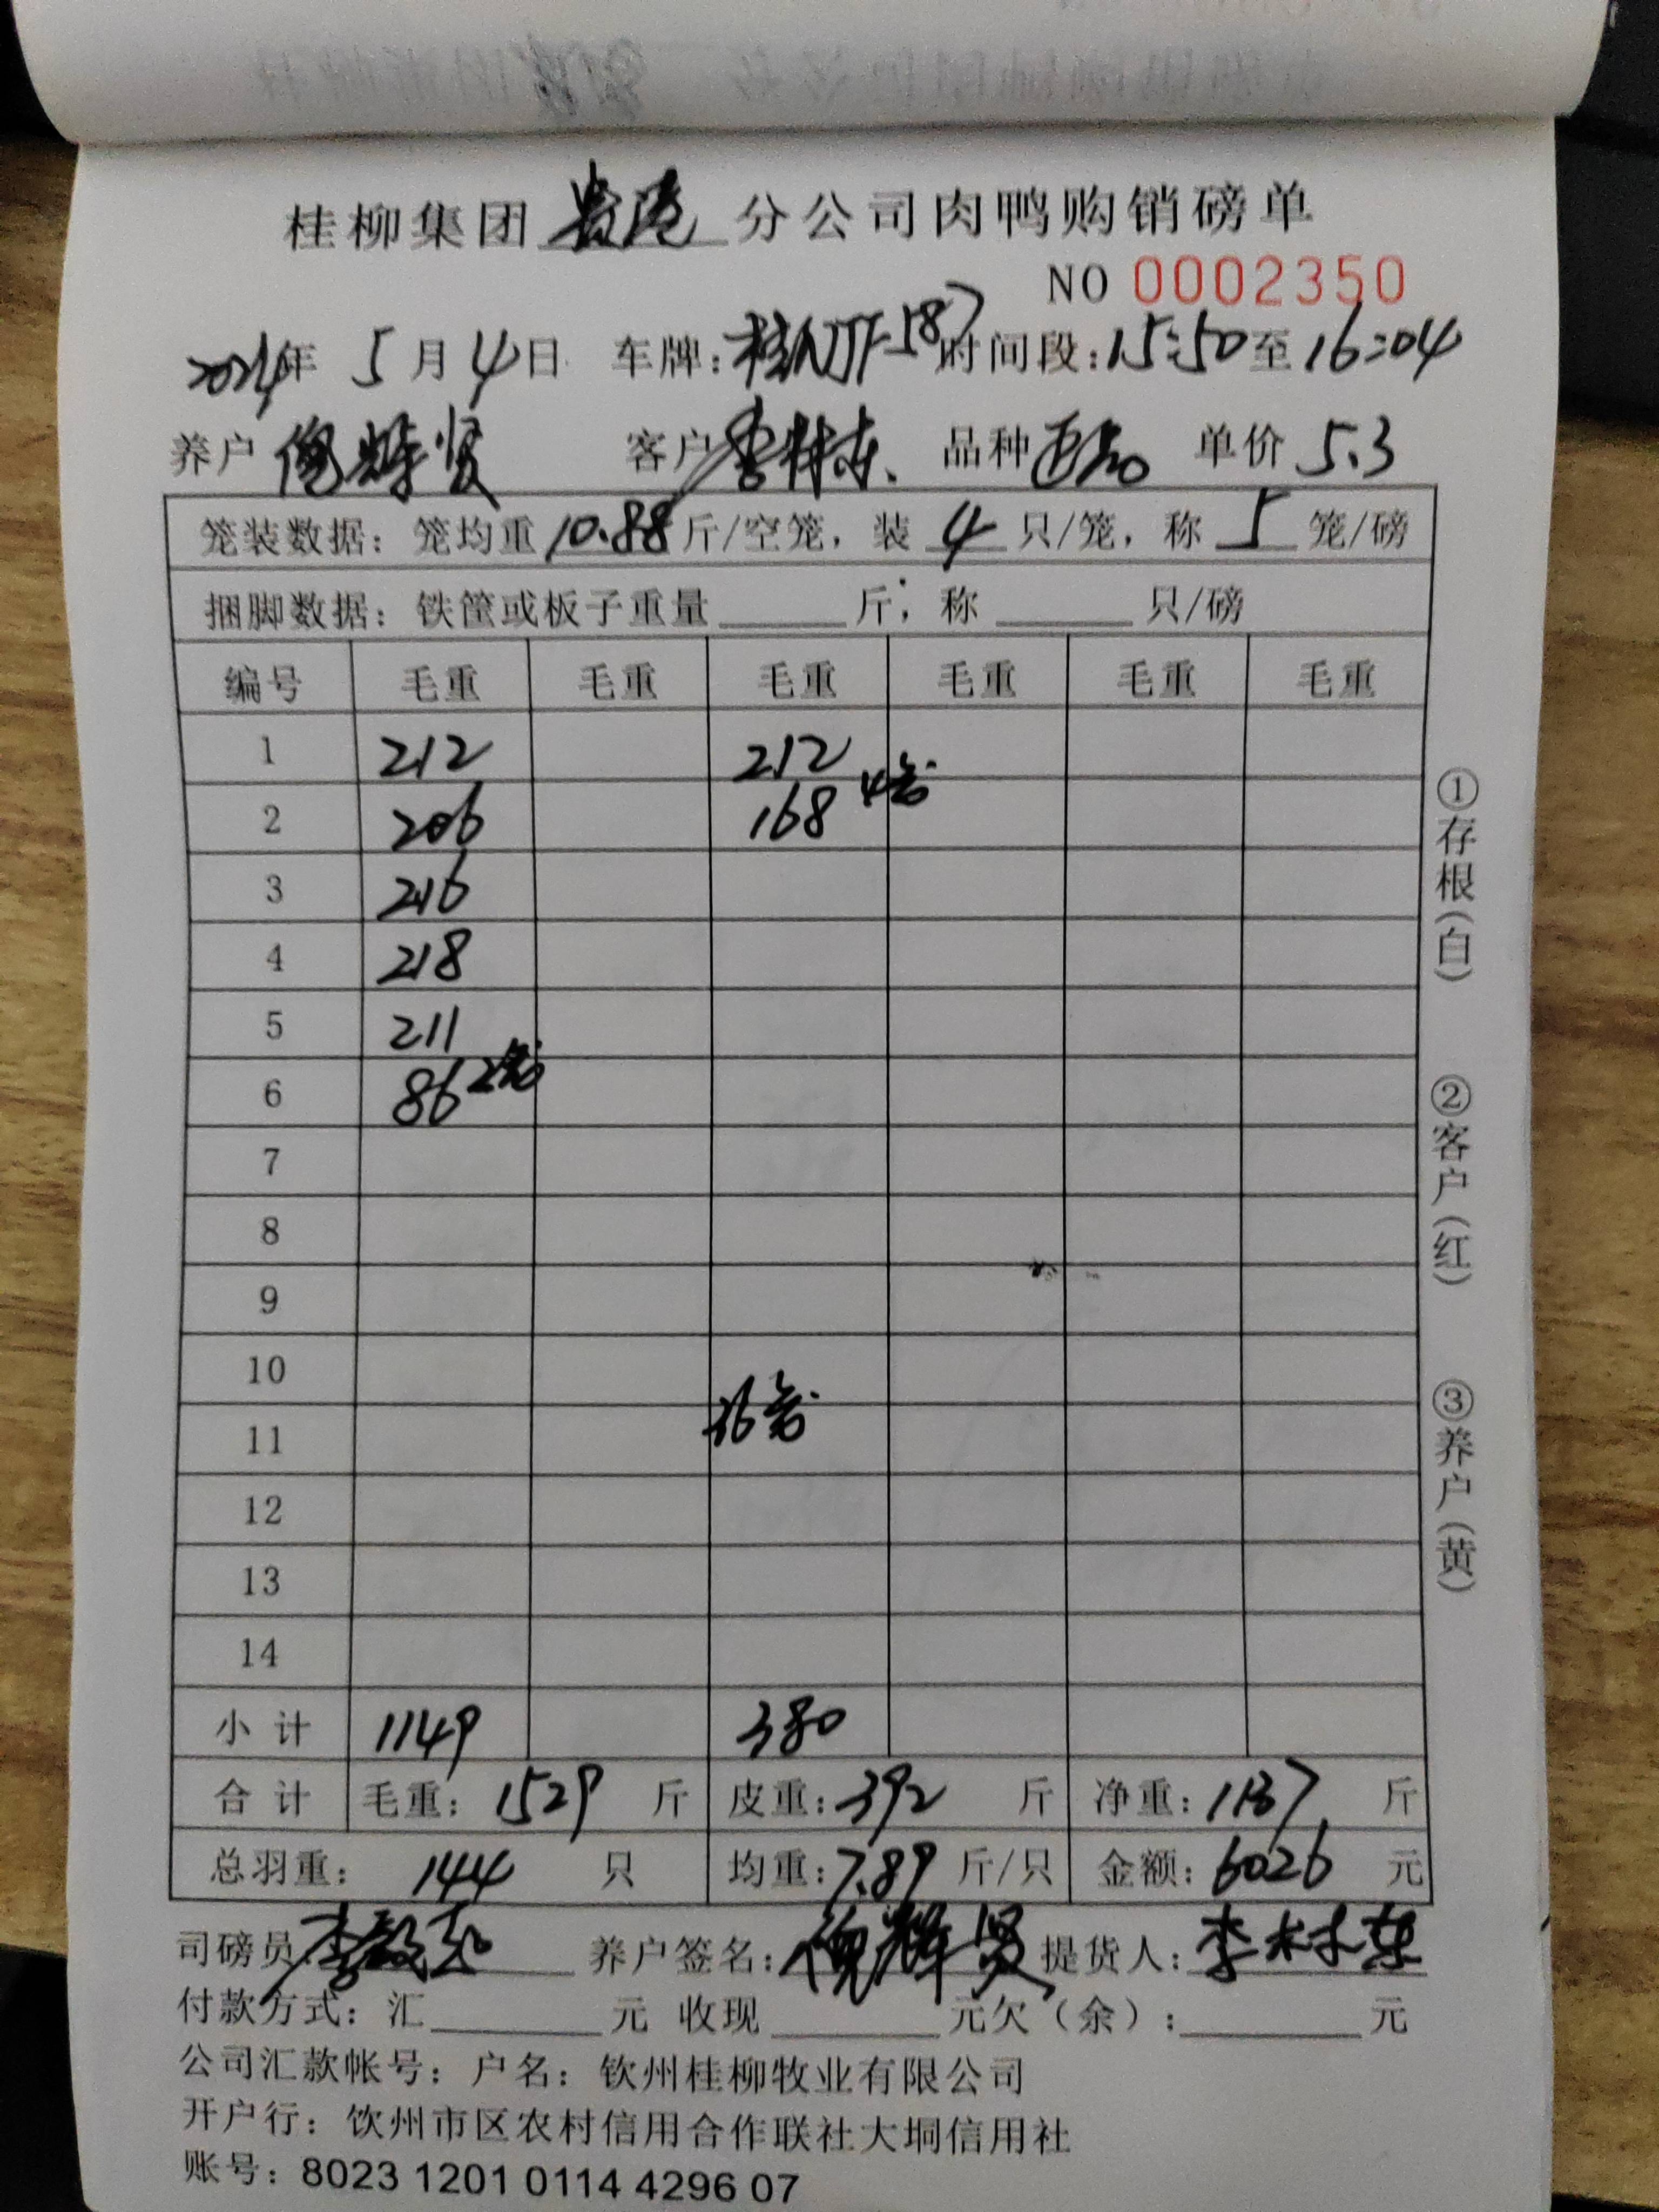 桂柳集团贵港分公司肉鸭购销磅单
NO 0002350
2024年 5月4日 车牌:桂NJF587 时间段:15:50至16:04
养户 倪辉贤 客户 李林东 品种 单价 5.3
笼装数据:笼均重10.88斤/空笼,装 4 只/笼,称 5 笼/磅
捆脚数据:铁筐或板子重量______斤,称______只/磅
编号 毛重 毛重 毛重 毛重 毛重 毛重
1 212 212
2 206 168 4笼
3 216
4 218
5 211
6 86 2笼
7
8
9
10
11 36笼
12
13
14
小计 1149 380
合计 毛重:1529 斤 皮重:392 斤 净重:1137 斤
总羽重:144 只 均重:7.89 斤/只 金额:6026 元
司磅员: 养户签名:倪辉贤 提货人:李林东
付款方式:汇______元 收现______元欠(余):______元
公司汇款帐号:户名:钦州桂柳牧业有限公司
开户行:饮州市区农村信用合作联社大垌信用社
账号:8023 1201 0114 4296 07
①存根(白)
②客户(红)
③养户(黄)